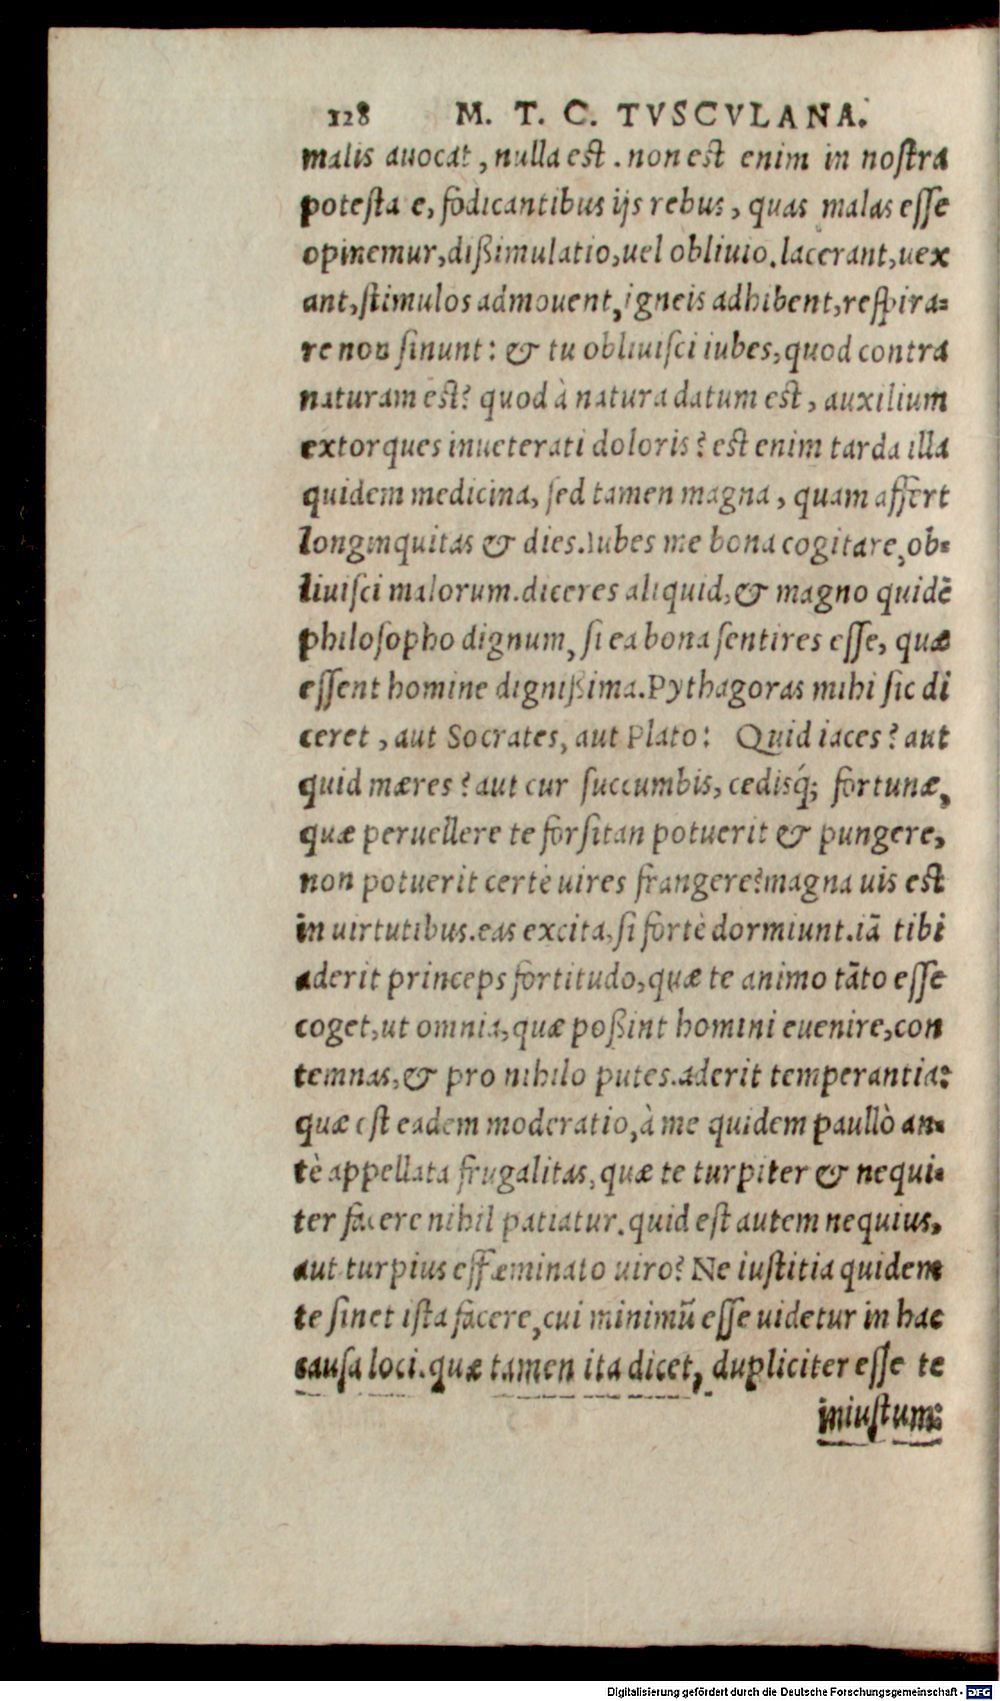 128 M. T. C. TVSCVLANA.
malis auocat, nulla est. non est enim in nostra
potesta e, fodicantibus ijs rebus, quas malas esse
opinemur, dißimulatio, uel obliuio. lacerant, uex
ant, stimulos admouent, igneis adhibent, respira=
re non sinunt: & tu obliuisci iubes, quod contra
naturam est? quod à natura datum est, auxilium
extorques inueterati doloris? est enim tarda illa
quidem medicina, sed tamen magna, quam affert
longinquitas & dies. Iubes me bona cogitare, ob=
liuisci malorum. diceres aliquid, & magno quidē
philosopho dignum, si ea bona sentires esse, quæ
essent homine dignißima. Pythagoras mihi sic di
ceret, aut Socrates, aut Plato: Quid iaces? aut
quid mæres? aut cur succumbis, cedisq́; fortunæ,
quæ peruellere te forsitan potuerit & pungere,
non potuerit certè uires frangere? magna uis est
in uirtutibus. eas excita, si fortè dormiunt. iā tibi
aderit princeps fortitudo, quæ te animo tāto esse
coget, ut omnia, quæ poßint homini euenire, con
temnas, & pro nihilo putes. aderit temperantia:
quæ est eadem moderatio, à me quidem paullò an=
tè appellata frugalitas, quæ te turpiter & nequi=
ter facere nihil patiatur. quid est autem nequius,
aut turpius effæminato uiro? Ne iustitia quidem
te sinet ista facere, cui minimū esse uidetur in hac
causa loci. quæ tamen ita dicet, dupliciter esse te
iniustum:
Digitalisierung gefördert durch die Deutsche Forschungsgemeinschaft - DFG